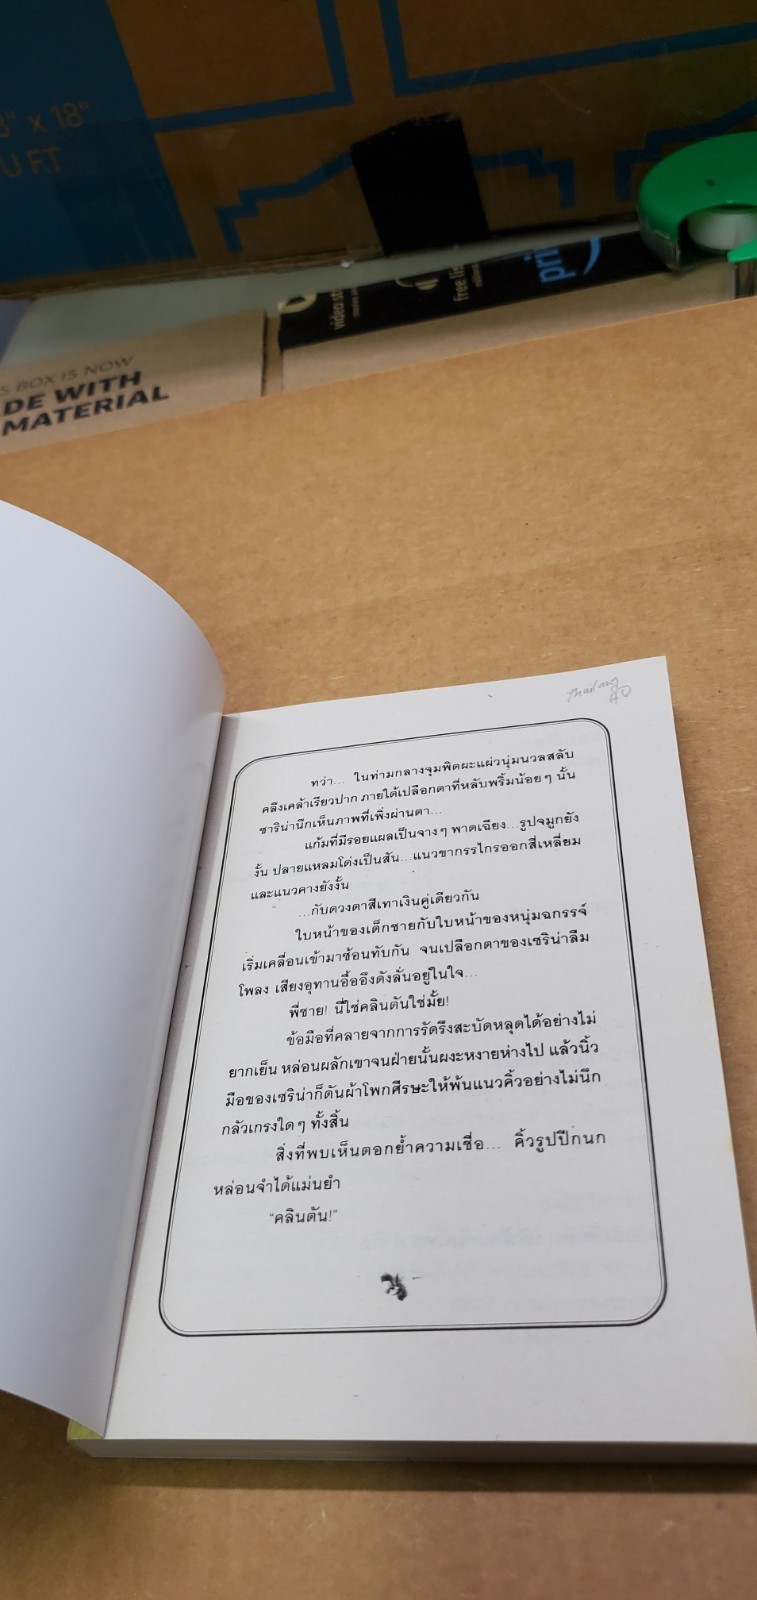 8" x 18"
U FT
pri
video st
free li
S BOX IS NOW
DE WITH
MATERIAL
ทว่า... ในท่ามกลางจุมพิตผะแผ่วนุ่มนวลสลับ
คลึงเคล้าเรียวปาก ภายใต้เปลือกตาที่หลับพริ้มน้อยๆ นั้น
ซาริน่านึกเห็นภาพที่เพิ่งผ่านตา...
แก้มที่มีรอยแผลเป็นจางๆ พาดเฉียง...รูปจมูกยัง
งั้น ปลายแหลมโด่งเป็นสัน...แนวขากรรไกรออกสี่เหลี่ยม
และแนวคางยังงั้น
...กับดวงตาสีเทาเงินคู่เดียวกัน
ใบหน้าของเด็กชายกับใบหน้าของหนุ่มฉกรรจ์
เริ่มเคลื่อนเข้ามาซ้อนทับกัน จนเปลือกตาของเซริน่าลืม
โพลง เสียงอุทานอื้ออึงดังลั่นอยู่ในใจ...
พี่ชาย! นี่ใช่คลินตันใช่มั้ย!
ข้อมือที่คลายจากการรัดรึงสะบัดหลุดได้อย่างไม่
ยากเย็น หล่อนผลักเขาจนฝ่ายนั้นผงะหงายห่างไป แล้วนิ้ว
มือของเซริน่าก็ดันผ้าโพกศีรษะให้พ้นแนวคิ้วอย่างไม่นึก
กลัวเกรงใดๆ ทั้งสิ้น
สิ่งที่พบเห็นตอกย้ำความเชื่อ... คิ้วรูปปีกนก
หล่อนจำได้แม่นยำ
"คลินตัน!"